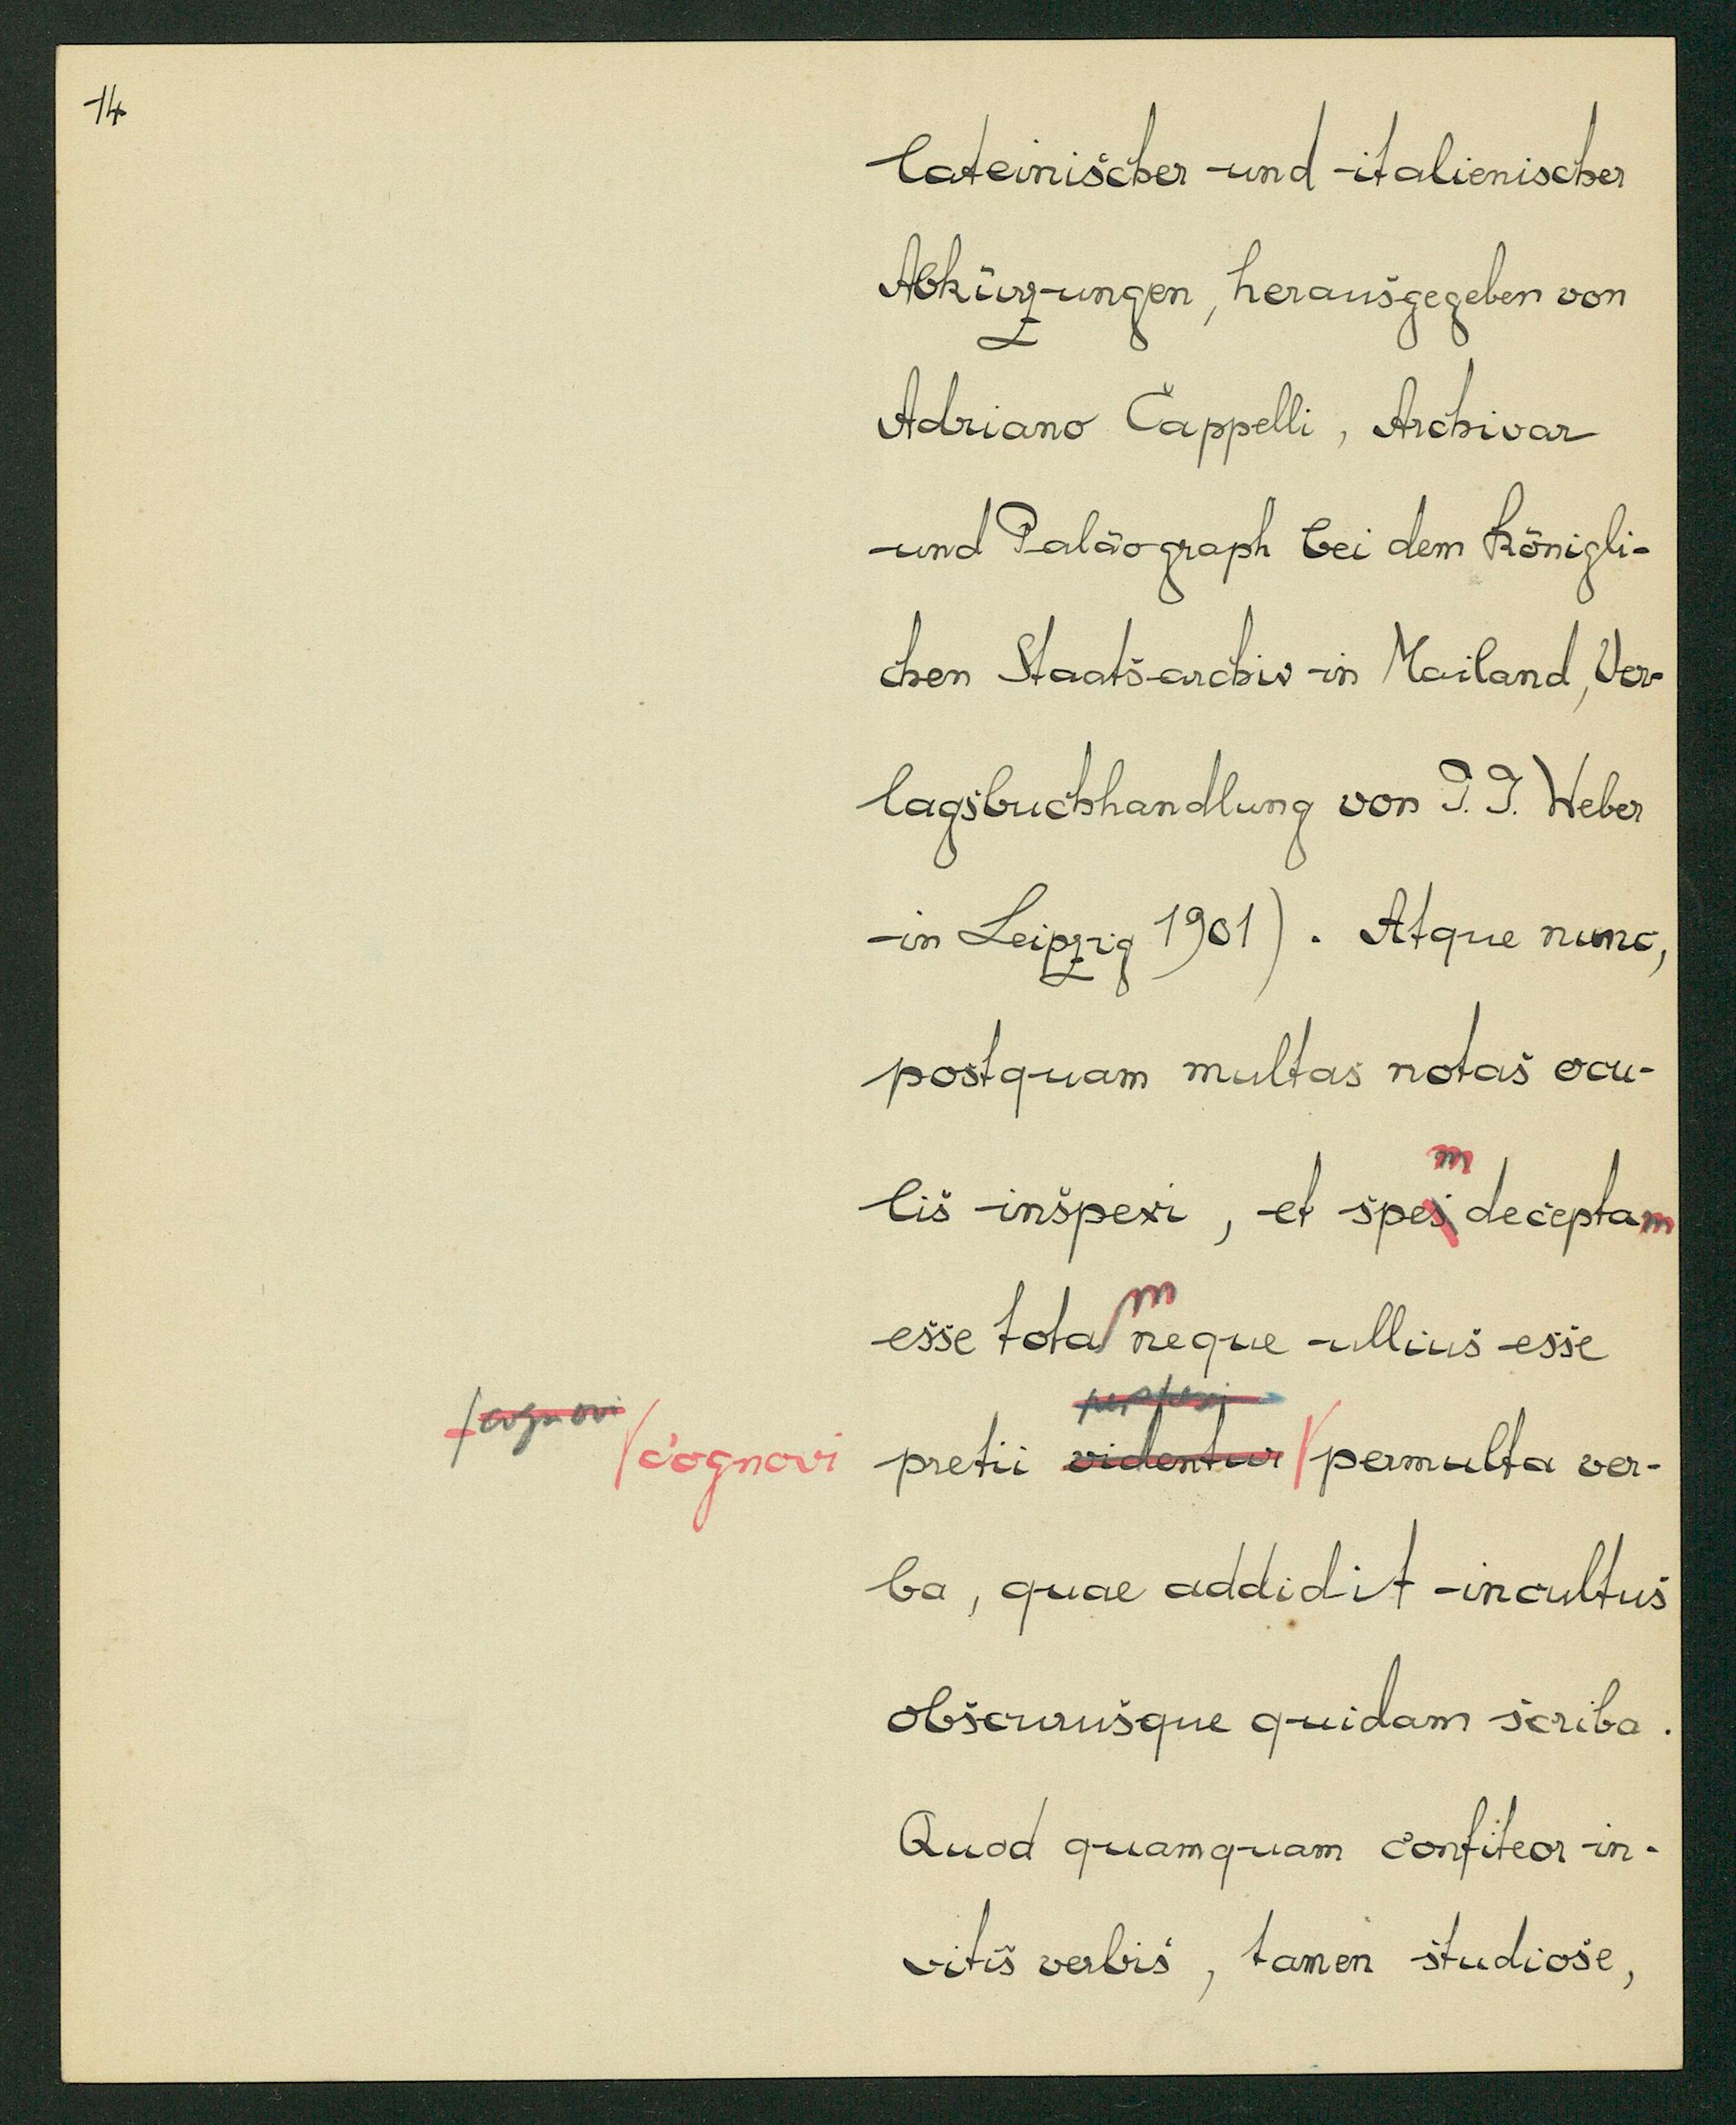 14
lateinischer und italienischer
Abkürzungen, herausgegeben von
Adriano Cappelli, Archivar
und Paläograph bei dem Königli-
chen Staatsarchiv in Mailand, Ver-
lagsbuchhandlung von J. J. Weber
in Leipzig 1901). Atque nunc,
postquam multas notas ocu-
m
lis inspexi, et spes deceptam
m
esse tota neque ullius esse
perspexi
cognovi
cognovi pretii videntur permulta ver-
ba, quae addidit incultus
obscurusque quidam scriba.
Quod quamquam confiteor in-
vitis verbis, tamen studiose,